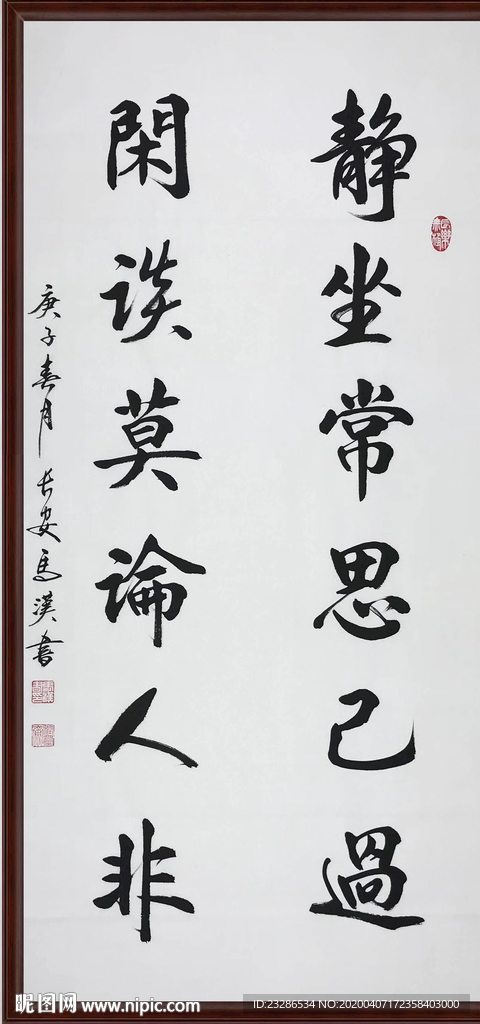 靜坐常思己過
閑談莫論人非
庚子春月長安馬漢書
昵图网 www.nipic.com
ID:23286534 NO:20200407172358403000